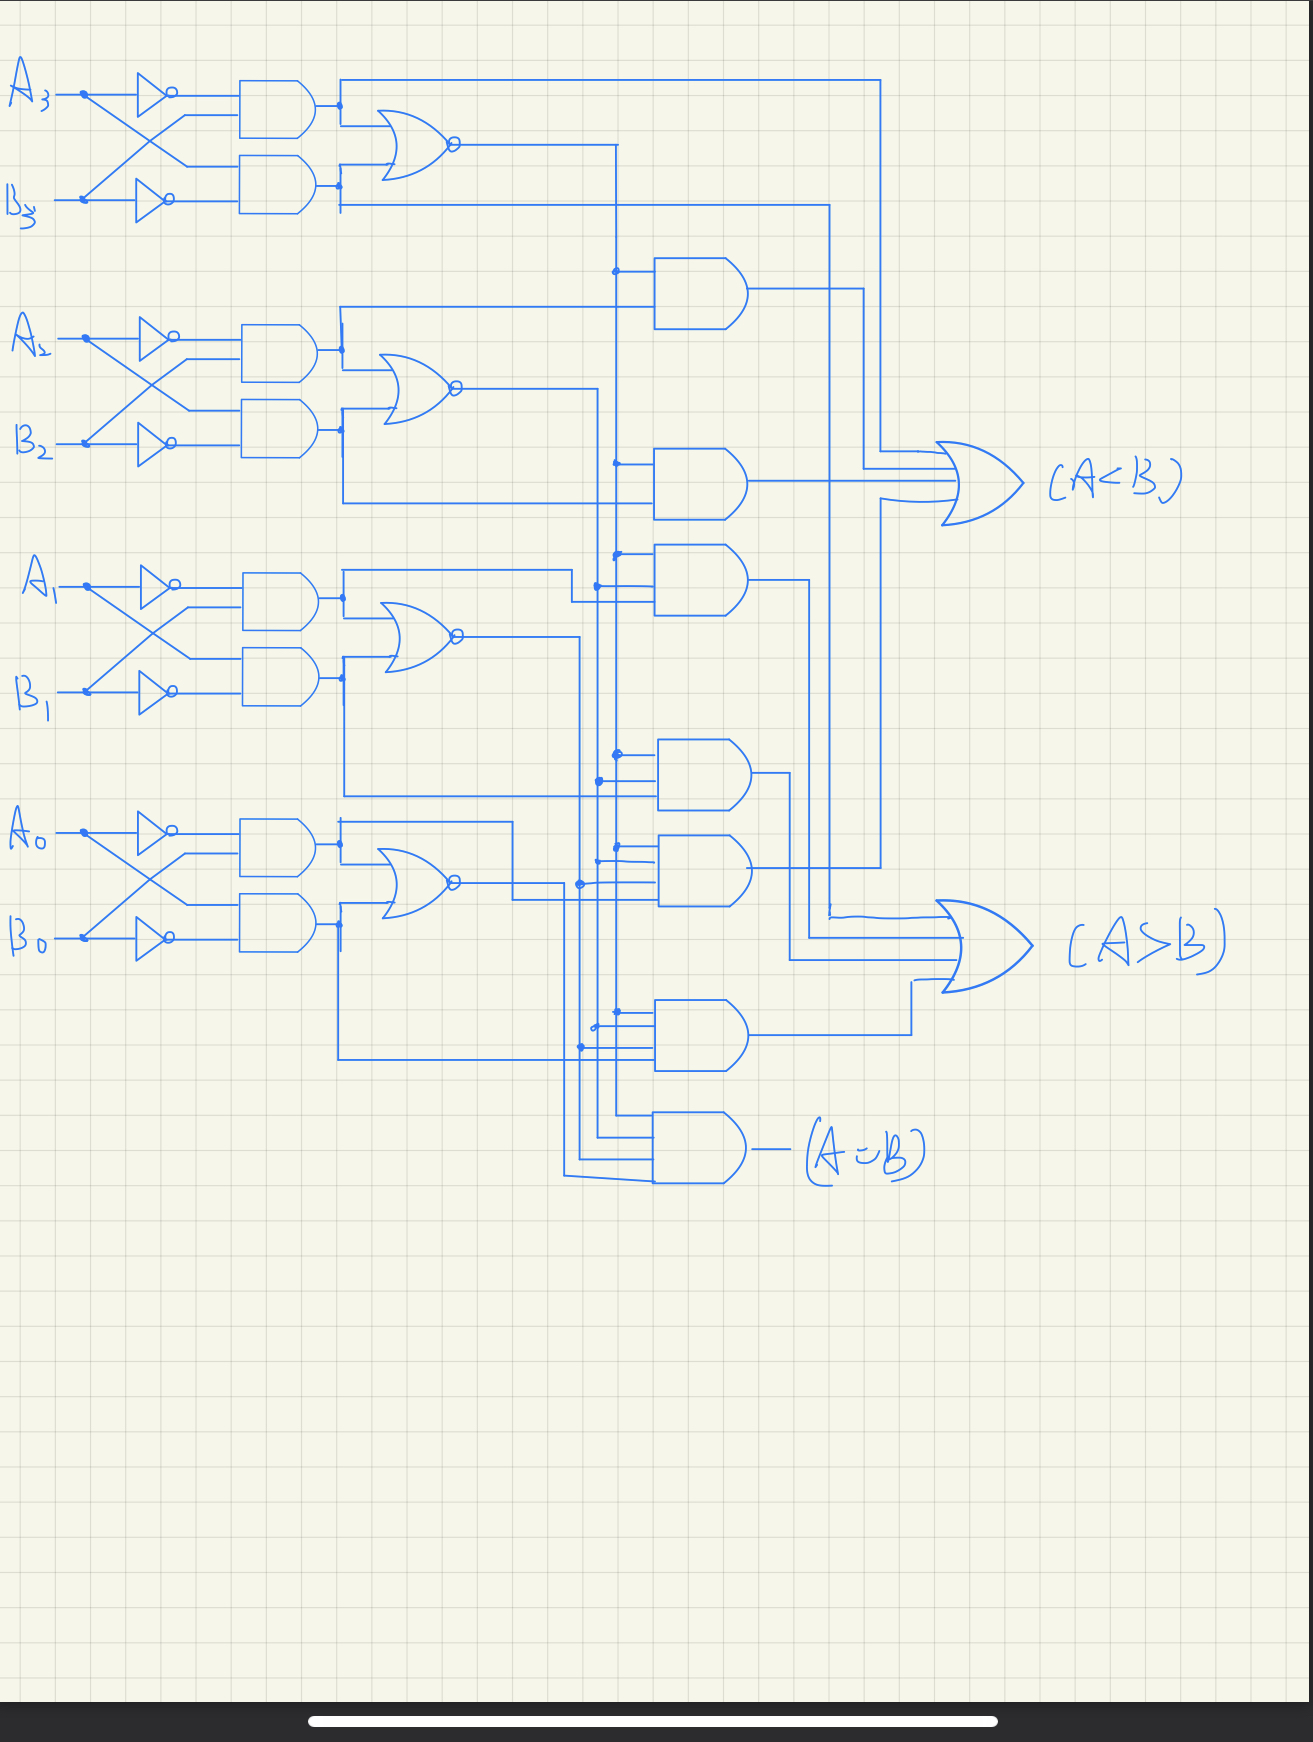 A3
B3
A2
B2
(A<B)
A1
B1
A0
B0
(A>B)
(A=B)